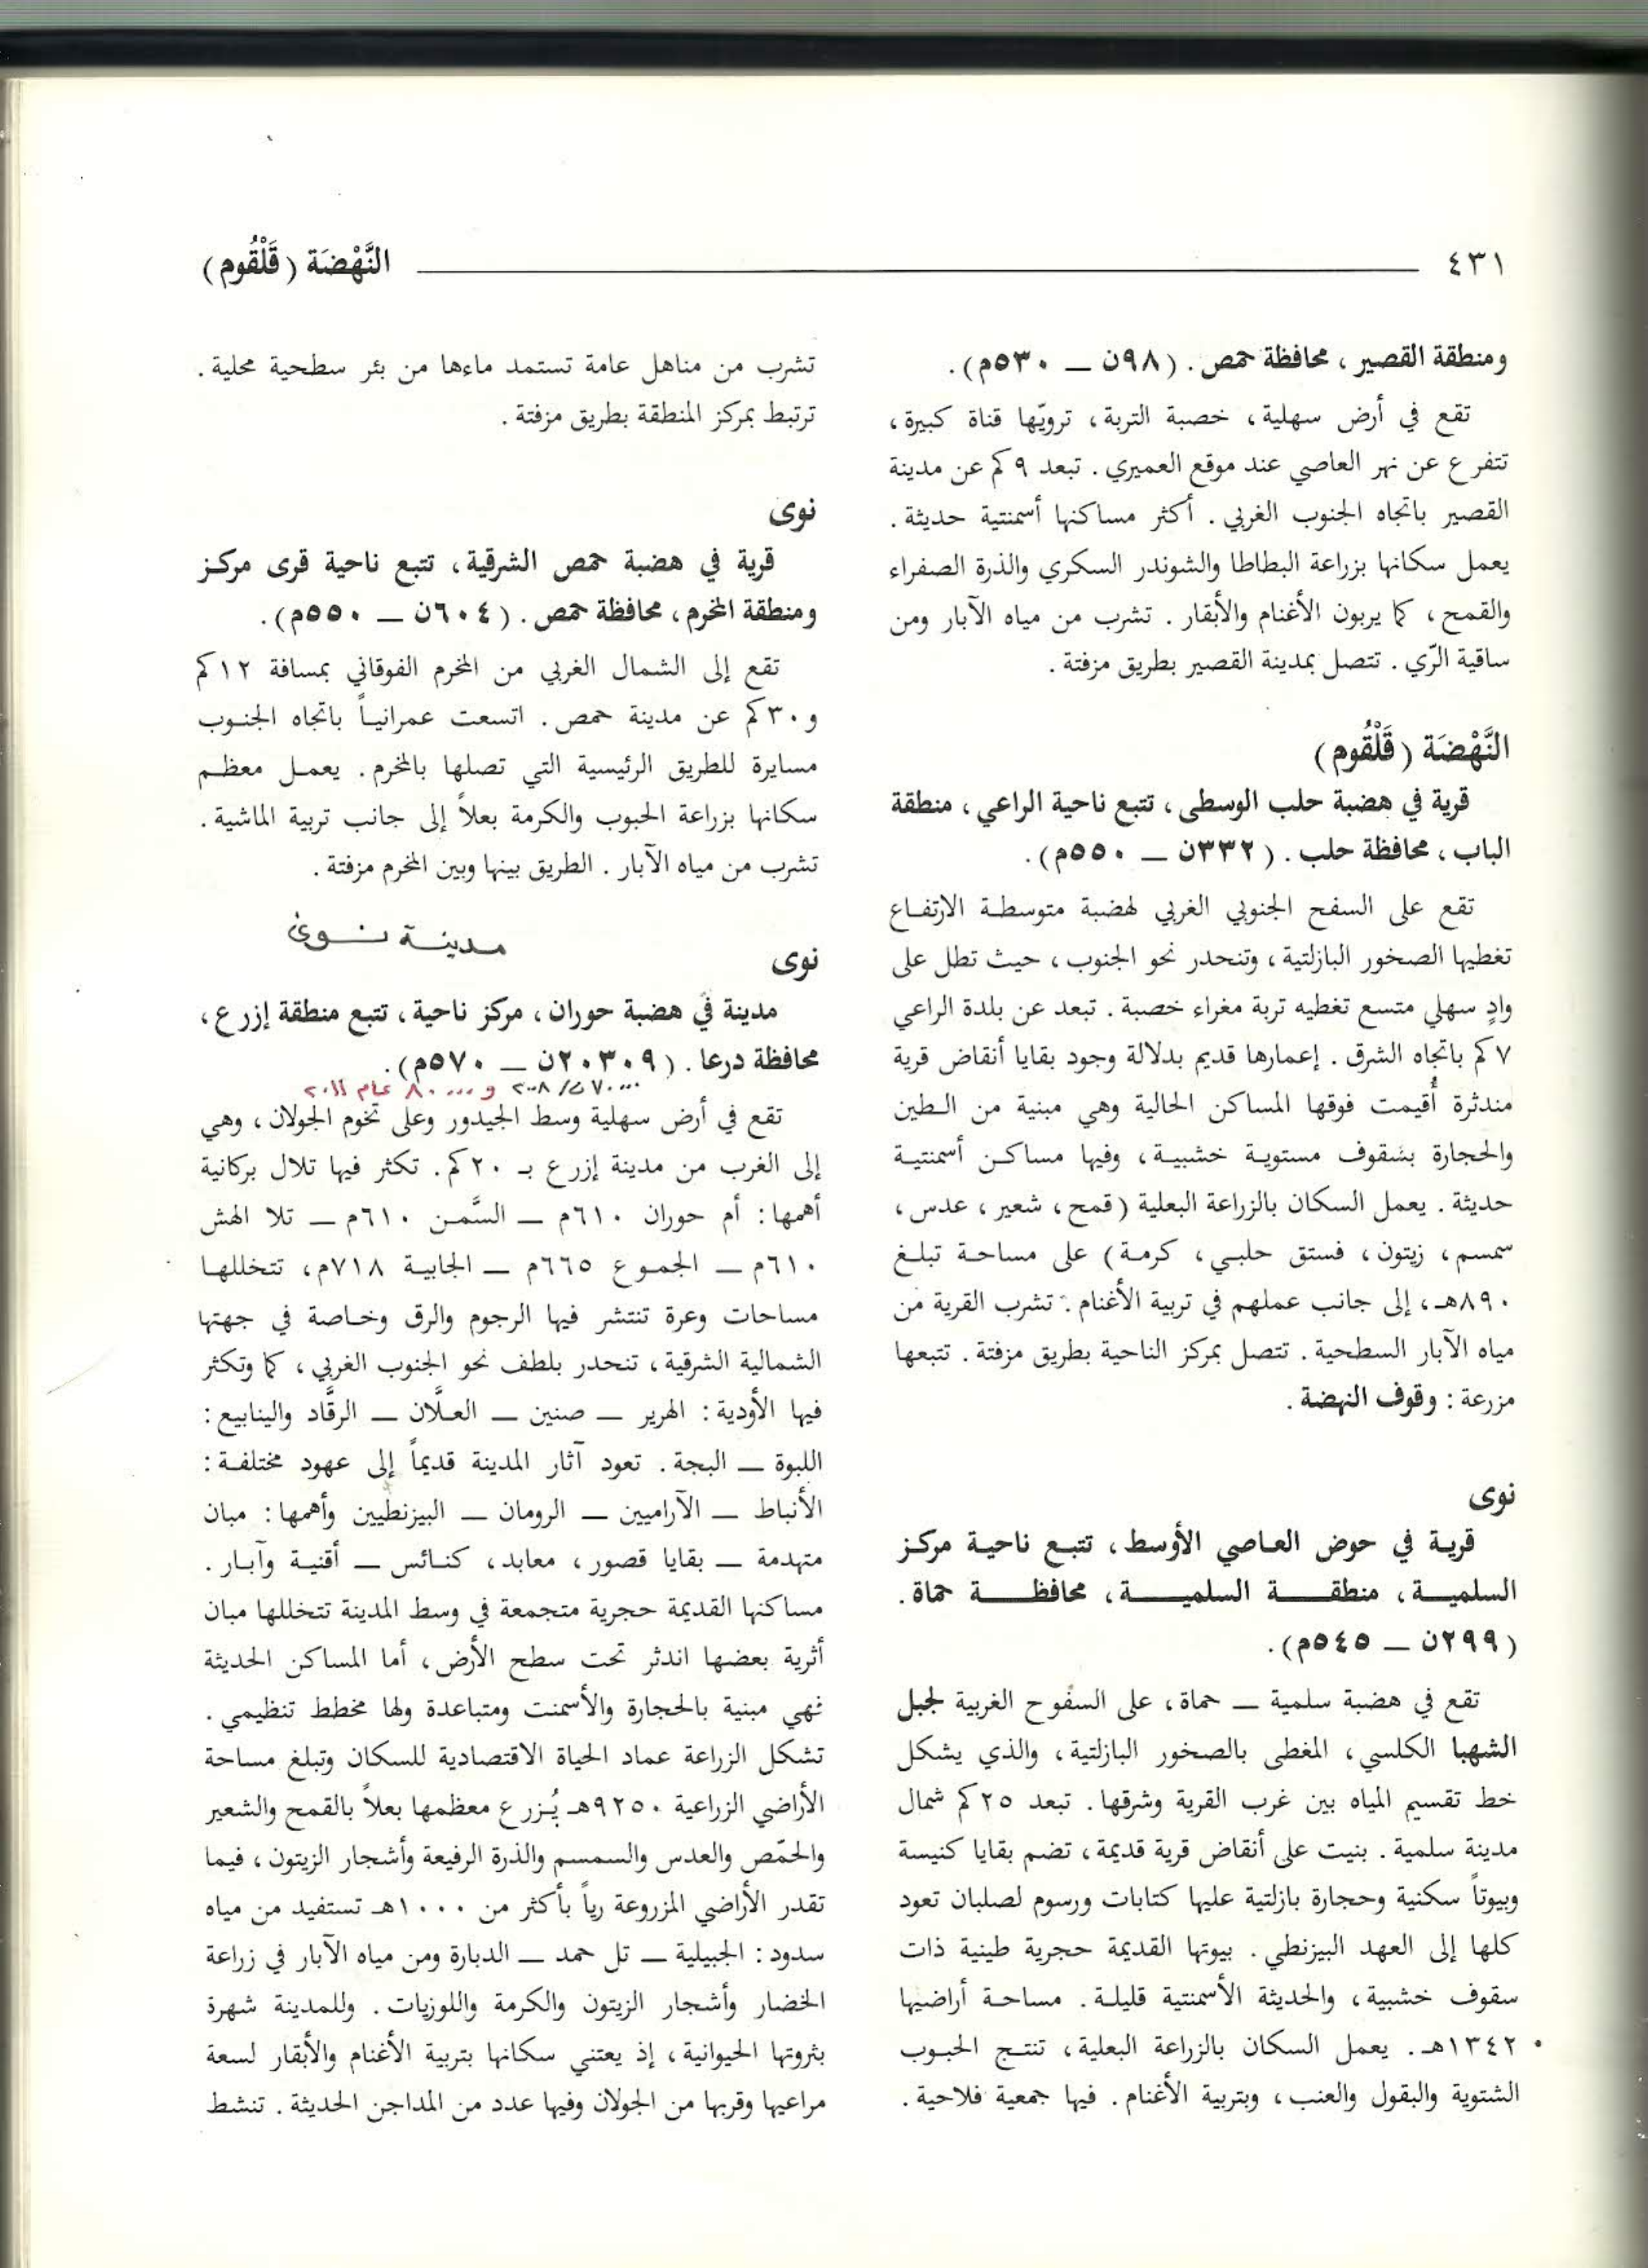 ٤٣١
النَّهْضَة (قَلْقُوم)
ومنطقة القصير، محافظة حمص. (٩٨ن — ٥٣٠م).
تقع في أرض سهلية، خصبة التربة، ترويّها قناة كبيرة،
تتفرع عن نهر العاصي عند موقع العميري. تبعد ٩كم عن مدينة
القصير باتجاه الجنوب الغربي. أكثر مساكنها أسمنتية حديثة.
يعمل سكانها بزراعة البطاطا والشوندر السكري والذرة الصفراء
والقمح، كما يربون الأغنام والأبقار. تشرب من مياه الآبار ومن
ساقية الرّي. تتصل بمدينة القصير بطريق مزفتة.
النَّهْضَة (قَلْقُوم)
قرية في هضبة حلب الوسطى، تتبع ناحية الراعي، منطقة
الباب، محافظة حلب. (٣٣٢ن — ٥٥٠م).
تقع على السفح الجنوبي الغربي لهضبة متوسطة الارتفاع
تغطيها الصخور البازلتية، وتنحدر نحو الجنوب، حيث تطل على
وادٍ سهلي متسع تغطيه تربة مغراء خصبة. تبعد عن بلدة الراعي
٧كم باتجاه الشرق. إعمارها قديم بدلالة وجود بقايا أنقاض قرية
مندثرة أُقيمت فوقها المساكن الحالية وهي مبنية من الطين
والحجارة بسقوف مستوية خشبية، وفيها مساكن أسمنتية
حديثة. يعمل السكان بالزراعة البعلية (قمح، شعير، عدس،
سمسم، زيتون، فستق حلبي، كرمة) على مساحة تبلغ
٨٩٠هـ، إلى جانب عملهم في تربية الأغنام. تشرب القرية من
مياه الآبار السطحية. تتصل بمركز الناحية بطريق مزفتة. تتبعها
مزرعة: وقوف النهضة.
نوى
قرية في حوض العاصي الأوسط، تتبع ناحية مركز
السلمية، منطقة السلمية، محافظة حماة.
(٢٩٩ن — ٥٤٥م).
تقع في هضبة سلمية — حماة، على السفوح الغربية لجبل
الشهبا الكلسي، المغطى بالصخور البازلتية، والذي يشكل
خط تقسيم المياه بين غرب القرية وشرقها. تبعد ٢٥كم شمال
مدينة سلمية. بنيت على أنقاض قرية قديمة، تضم بقايا كنيسة
وبيوتاً سكنية وحجارة بازلتية عليها كتابات ورسوم لصلبان تعود
كلها إلى العهد البيزنطي. بيوتها القديمة حجرية طينية ذات
سقوف خشبية، والحديثة الأسمنتية قليلة. مساحة أراضيها
١٣٤٢هـ. يعمل السكان بالزراعة البعلية، تنتج الحبوب
الشتوية والبقول والعنب، وبتربية الأغنام. فيها جمعية فلاحية.
تشرب من مناهل عامة تستمد ماءها من بئر سطحية محلية.
ترتبط بمركز المنطقة بطريق مزفتة.
نوى
قرية في هضبة حمص الشرقية، تتبع ناحية قرى مركز
ومنطقة المخرم، محافظة حمص. (٦٠٤ن — ٥٥٠م).
تقع إلى الشمال الغربي من المخرم الفوقاني بمسافة ١٢كم
و٣٠كم عن مدينة حمص. اتسعت عمرانياً باتجاه الجنوب
مسايرة للطريق الرئيسية التي تصلها بالمخرم. يعمل معظم
سكانها بزراعة الحبوب والكرمة بعلاً إلى جانب تربية الماشية.
تشرب من مياه الآبار. الطريق بينها وبين المخرم مزفتة.
مدينة نوى
نوى
مدينة في هضبة حوران، مركز ناحية، تتبع منطقة إزرع،
محافظة درعا. (٢٠٣٠٩ن — ٥٧٠م).
٧٠٠٠٠ن/٢٠٠٨ و ٨٠٠٠٠ عام ٢٠١١
تقع في أرض سهلية وسط الجيدور وعلى تخوم الجولان، وهي
إلى الغرب من مدينة إزرع بـ ٢٠كم. تكثر فيها تلال بركانية
أهمها: أم حوران ٦١٠م — السَّمن ٦١٠م — تلا الهش
٦١٠م — الجموع ٦٦٥م — الجابية ٧١٨م، تتخللها
مساحات وعرة تنتشر فيها الرجوم والرق وخاصة في جهتها
الشمالية الشرقية، تنحدر بلطف نحو الجنوب الغربي، كما وتكثر
فيها الأودية: الهرير — صنين — العلَّان — الرقَّاد والينابيع:
اللبوة — البجة. تعود آثار المدينة قديماً إلى عهود مختلفة:
الأنباط — الآراميين — الرومان — البيزنطيين وأهمها: مبان
متهدمة — بقايا قصور، معابد، كنائس — أقنية وآبار.
مساكنها القديمة حجرية متجمعة في وسط المدينة تتخللها مبان
أثرية بعضها اندثر تحت سطح الأرض، أما المساكن الحديثة
فهي مبنية بالحجارة والأسمنت ومتباعدة ولها مخطط تنظيمي.
تشكل الزراعة عماد الحياة الاقتصادية للسكان وتبلغ مساحة
الأراضي الزراعية ٩٢٥٠هـ يُزرع معظمها بعلاً بالقمح والشعير
والحمّص والعدس والسمسم والذرة الرفيعة وأشجار الزيتون، فيما
تقدر الأراضي المزروعة رياً بأكثر من ١٠٠٠هـ تستفيد من مياه
سدود: الجبيلية — تل حمد — الدبارة ومن مياه الآبار في زراعة
الخضار وأشجار الزيتون والكرمة واللوزيات. وللمدينة شهرة
بثروتها الحيوانية، إذ يعتني سكانها بتربية الأغنام والأبقار لسعة
مراعيها وقربها من الجولان وفيها عدد من المداجن الحديثة. تنشط